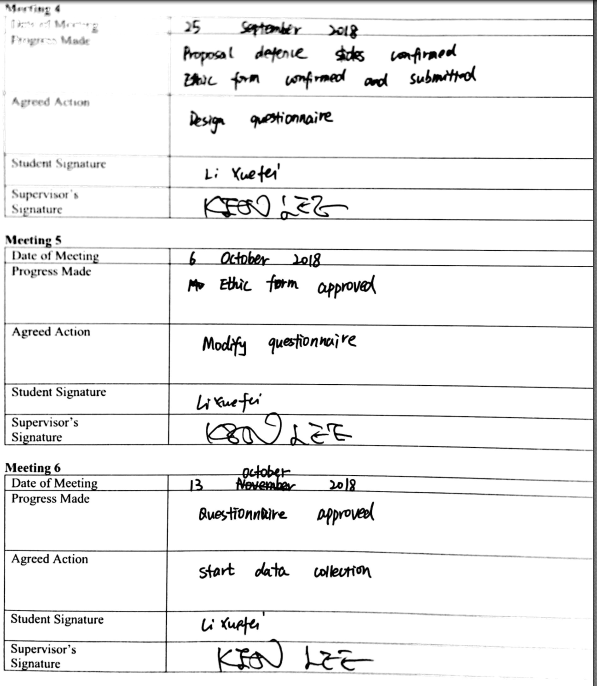 Meeting 4
Date of Meeting 25 September 2018
Progress Made Proposal defence slides confirmed
Ethic form confirmed and submitted
Agreed Action
Design questionnaire
Student Signature Li Xuefei
Supervisor's
Signature KEON LEE
Meeting 5
Date of Meeting 6 October 2018
Progress Made Ethic form approved
Agreed Action Modify questionnaire
Student Signature Li Xuefei
Supervisor's
Signature KEON LEE
Meeting 6
October
Date of Meeting 13 November 2018
Progress Made
Questionnaire approved
Agreed Action
start data collection
Student Signature Li Xuefei
Supervisor's
Signature KEON LEE